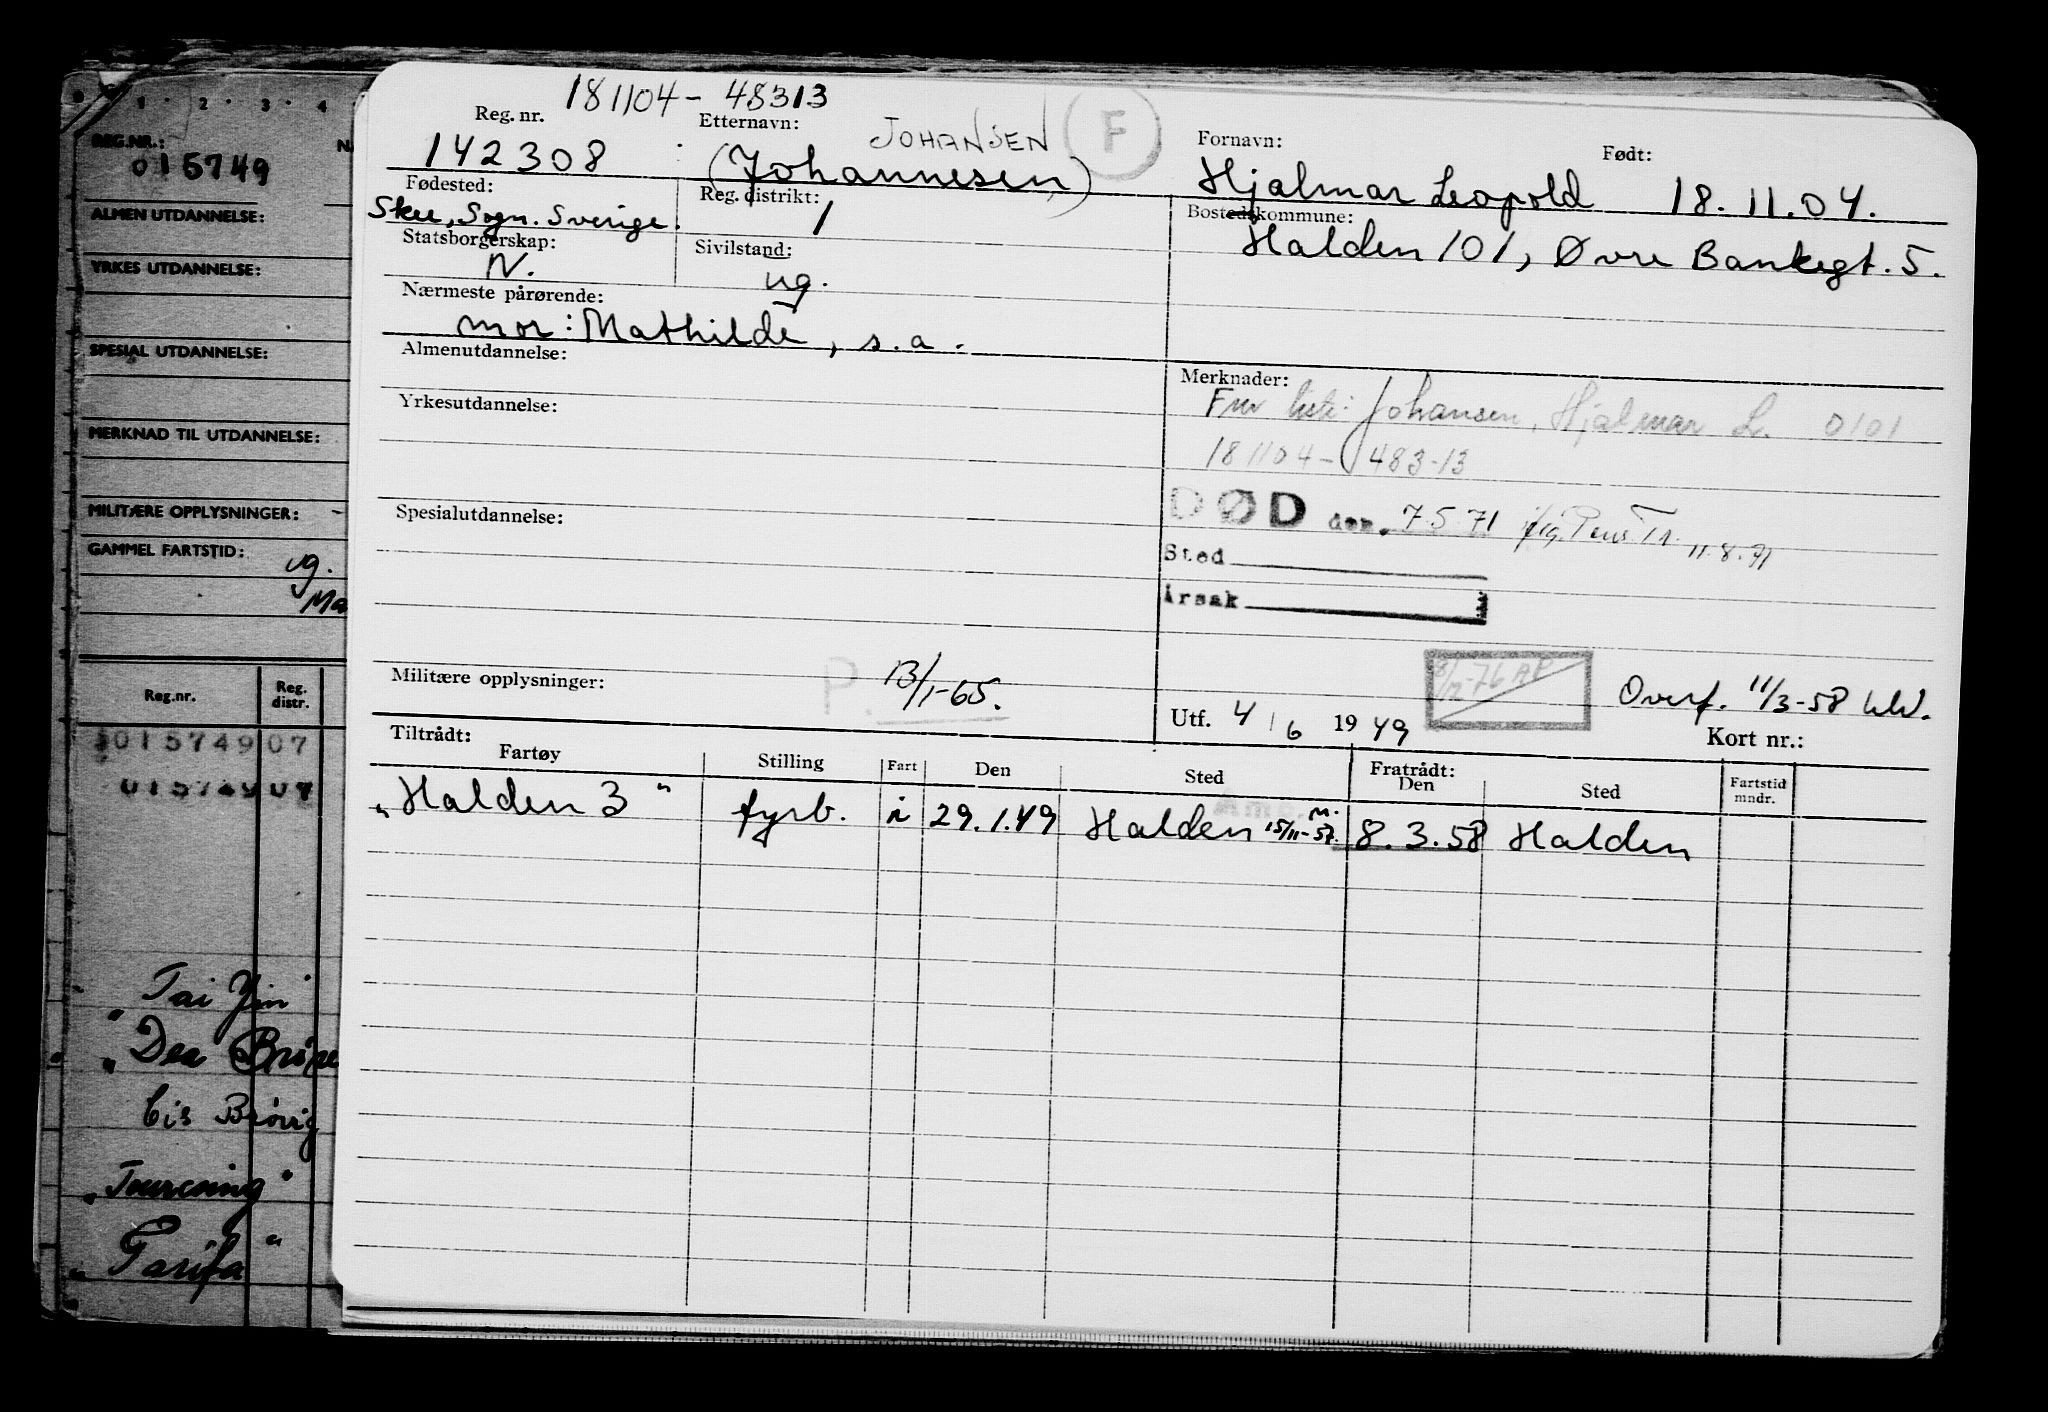 181104 - 48313
Reg. nr. Etternavn: JOHANSEN F Fornavn: Født:
142308 (Johannesen) Hjalmar Leopold 18.11.04.
Fødested: Reg. distrikt: Bostedskommune:
Skee, Sogn. Sverige. 1 Halden 101, Øvre Bankegt. 5.
Statsborgerskap: Sivilstand:
N. ug.
Nærmeste pårørende:
mor: Mathilde, s.a.
Almenutdannelse: Merknader:
Johansen, Hjalmar L. 0101
Yrkesutdannelse:
181104 - 483-13
Spesialutdannelse: DØD den. 7.5 71 11.8.71
Sted
Årsak
Militære opplysninger: P. 13/1-65.
Utf. 4/6 1949 Overf. 11/3-58
Kort nr.:
Tiltrådt: Fratrådt:
Fartøy Stilling Fart Den Sted Den Sted Fartstid mndr.
"Halden 3" fyrb. i 29.1.49 Halden 15/11-57. 8.3.58 Halden
1 2 3 4
REG.NR.:
015749
ALMEN UTDANNELSE:
YRKES UTDANNELSE:
SPESIAL UTDANNELSE:
MERKNAD TIL UTDANNELSE:
MILITÆRE OPPLYSNINGER: -
GAMMEL FARTSTID:
ug.
Ma
Reg.nr. Reg. distr.
015749 07
015749 07
"Tai Yin"
"Dea
Cis Brøvig
"Tourcoing"
"Tarifa"